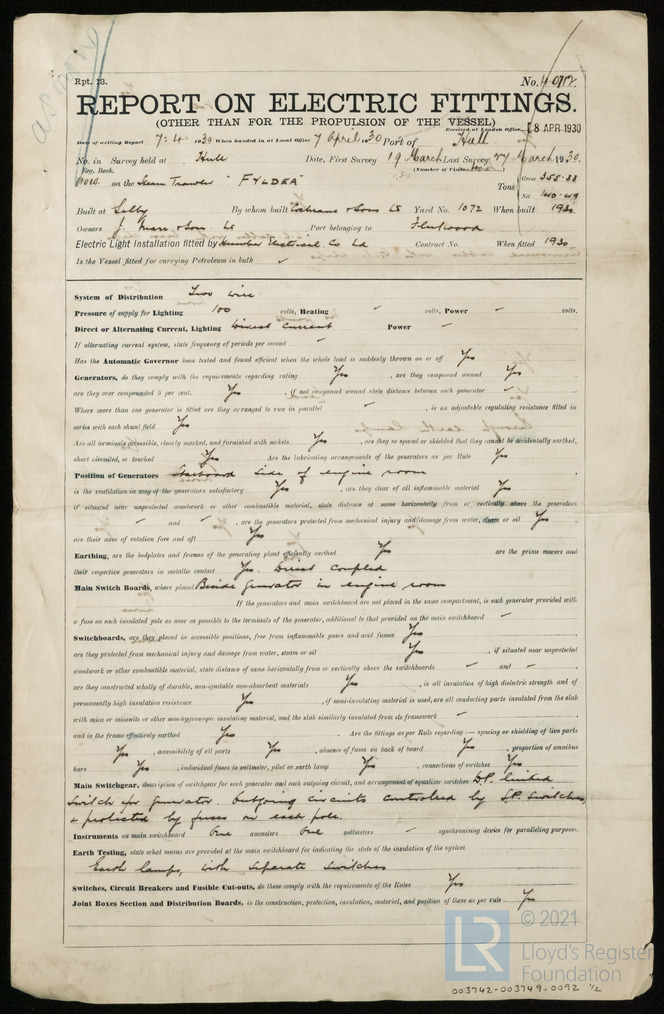 Rpt. 13.
No. 40712
REPORT ON ELECTRIC FITTINGS.
(OTHER THAN FOR THE PROPULSION OF THE VESSEL)
Received at London Office 8 APR 1930
Date of writing Report 7.4.1930 When handed in at Local Office 7 April 30 Port of Hull
No. in Survey held at Hull Date, First Survey 19 March Last Survey 27 March 1930
Reg. Book. (Number of Visits
on the Steam Trawler "FYLDEA" Tons Gross 355.38
Net 140.49
Built at Selby By whom built Cochrane & Sons Ld Yard No. 1072 When built 1930
Owners J. Marr & Sons Ld Port belonging to Fleetwood
Electric Light Installation fitted by Humber Electrical Co Ld Contract No. When fitted 1930
Is the Vessel fitted for carrying Petroleum in bulk ✓
System of Distribution Two wire
Pressure of supply for Lighting 100 volts, Heating - volts, Power - volts.
Direct or Alternating Current, Lighting Direct Current Power -
If alternating current system, state frequency of periods per second -
Has the Automatic Governor been tested and found efficient when the whole load is suddenly thrown on or off Yes
Generators, do they comply with the requirements regarding rating Yes , are they compound wound Yes
are they over compounded 5 per cent. Yes , if not compound wound state distance between each generator -
Where more than one generator is fitted are they arranged to run in parallel - , is an adjustable regulating resistance fitted in
series with each shunt field Yes
Are all terminals accessible, clearly marked, and furnished with sockets Yes , are they so spaced or shielded that they cannot be accidentally earthed,
short circuited, or touched Yes Are the lubricating arrangements of the generators as per Rule Yes
Position of Generators Starboard side of engine room
is the ventilation in way of the generators satisfactory Yes , are they clear of all inflammable material Yes
if situated near unprotected woodwork or other combustible material, state distance of same horizontally from or vertically above the generators
- and - , are the generators protected from mechanical injury and damage from water, steam or oil Yes
are their axes of rotation fore and aft Yes
Earthing, are the bedplates and frames of the generating plant efficiently earthed Yes are the prime movers and
their respective generators in metallic contact Yes. Direct coupled
Main Switch Boards, where placed Beside generator in engine room
If the generators and main switchboard are not placed in the same compartment, is each generator provided with
a fuse on each insulated pole as near as possible to the terminals of the generator, additional to that provided on the main switchboard -
Switchboards, are they placed in accessible positions, free from inflammable gases and acid fumes Yes
are they protected from mechanical injury and damage from water, steam or oil Yes , if situated near unprotected
woodwork or other combustible material, state distance of same horizontally from or vertically above the switchboards - and -
are they constructed wholly of durable, non-ignitable non-absorbent materials Yes , is all insulation of high dielectric strength and of
permanently high insulation resistance Yes , if semi-insulating material is used, are all conducting parts insulated from the slab
with mica or micanite or other non-hygroscopic insulating material, and the slab similarly insulated from its framework -
and is the frame effectively earthed Yes . Are the fittings as per Rule regarding:— spacing or shielding of live parts
Yes , accessibility of all parts Yes , absence of fuses on back of board Yes , proportion of omnibus
bars Yes , individual fuses to voltmeter, pilot or earth lamp Yes , connections of switches Yes
Main Switchgear, description of switchgear for each generator and each outgoing circuit, and arrangement of equalizer switches D.P. linked
switch for generator. Outgoing circuits controlled by S.P. switches,
& protected by fuses on each pole.
Instruments on main switchboard One ammeters One voltmeters - synchronising device for paralleling purposes.
Earth Testing, state what means are provided at the main switchboard for indicating the state of the insulation of the system
Earth lamps, with separate switches
Switches, Circuit Breakers and Fusible Cut-outs, do these comply with the requirements of the Rules Yes
Joint Boxes Section and Distribution Boards, is the construction, protection, insulation, material, and position of these as per rule Yes
LR
© 2021
Lloyd's Register
Foundation
003742-003749-0092 1/2